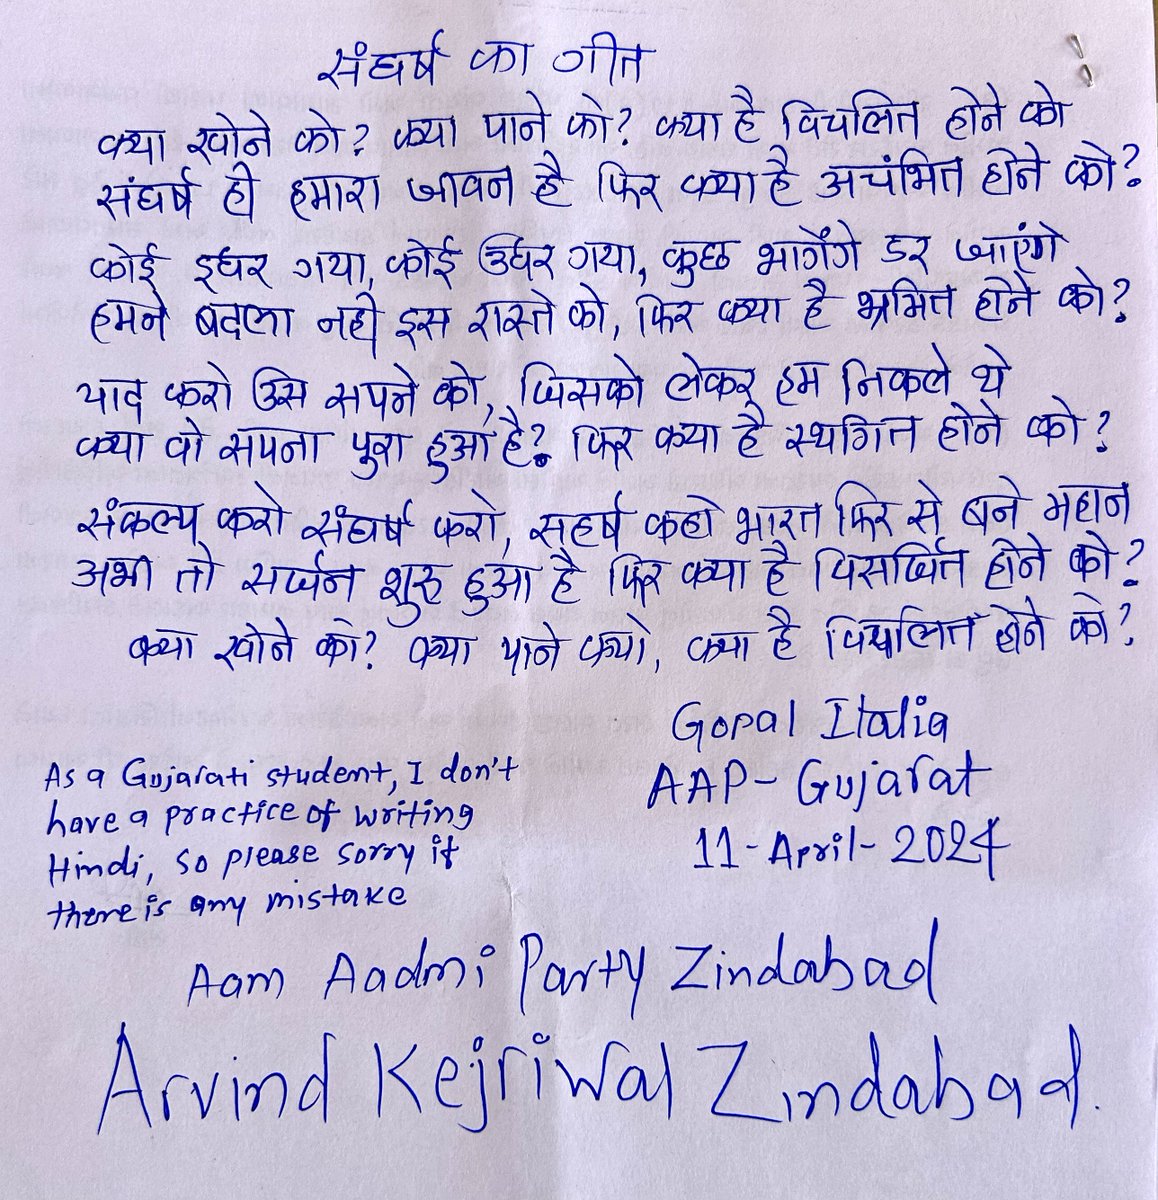 संघर्ष का गीत
क्या खोने को? क्या पाने को? क्या है विचलित होने को
संघर्ष ही हमारा जीवन है फिर क्या है अचंभित होने को?
कोई इधर गया, कोई उधर गया, कुछ भागेंगे डर जाएंगे
हमने बदला नही इस रास्ते को, फिर क्या है भ्रमित होने को?
याद करो उस सपने को, जिसको लेकर हम निकले थे
क्या वो सपना पुरा हुआ है? फिर क्या है स्थगित होने को?
संकल्प करो संघर्ष करो, सहर्ष कहो भारत फिर से बने महान
अभी तो सर्जन शुरु हुआ है फिर क्या है विसर्जित होने को?
क्या खोने को? क्या पाने को, क्या है विचलित होने को?
Gopal Italia
AAP - Gujarat
11 - April - 2024
As a Gujarati student, I don't
have a practice of writing
Hindi, so please sorry if
there is any mistake
Aam Aadmi Party Zindabad
Arvind Kejriwal Zindabad.